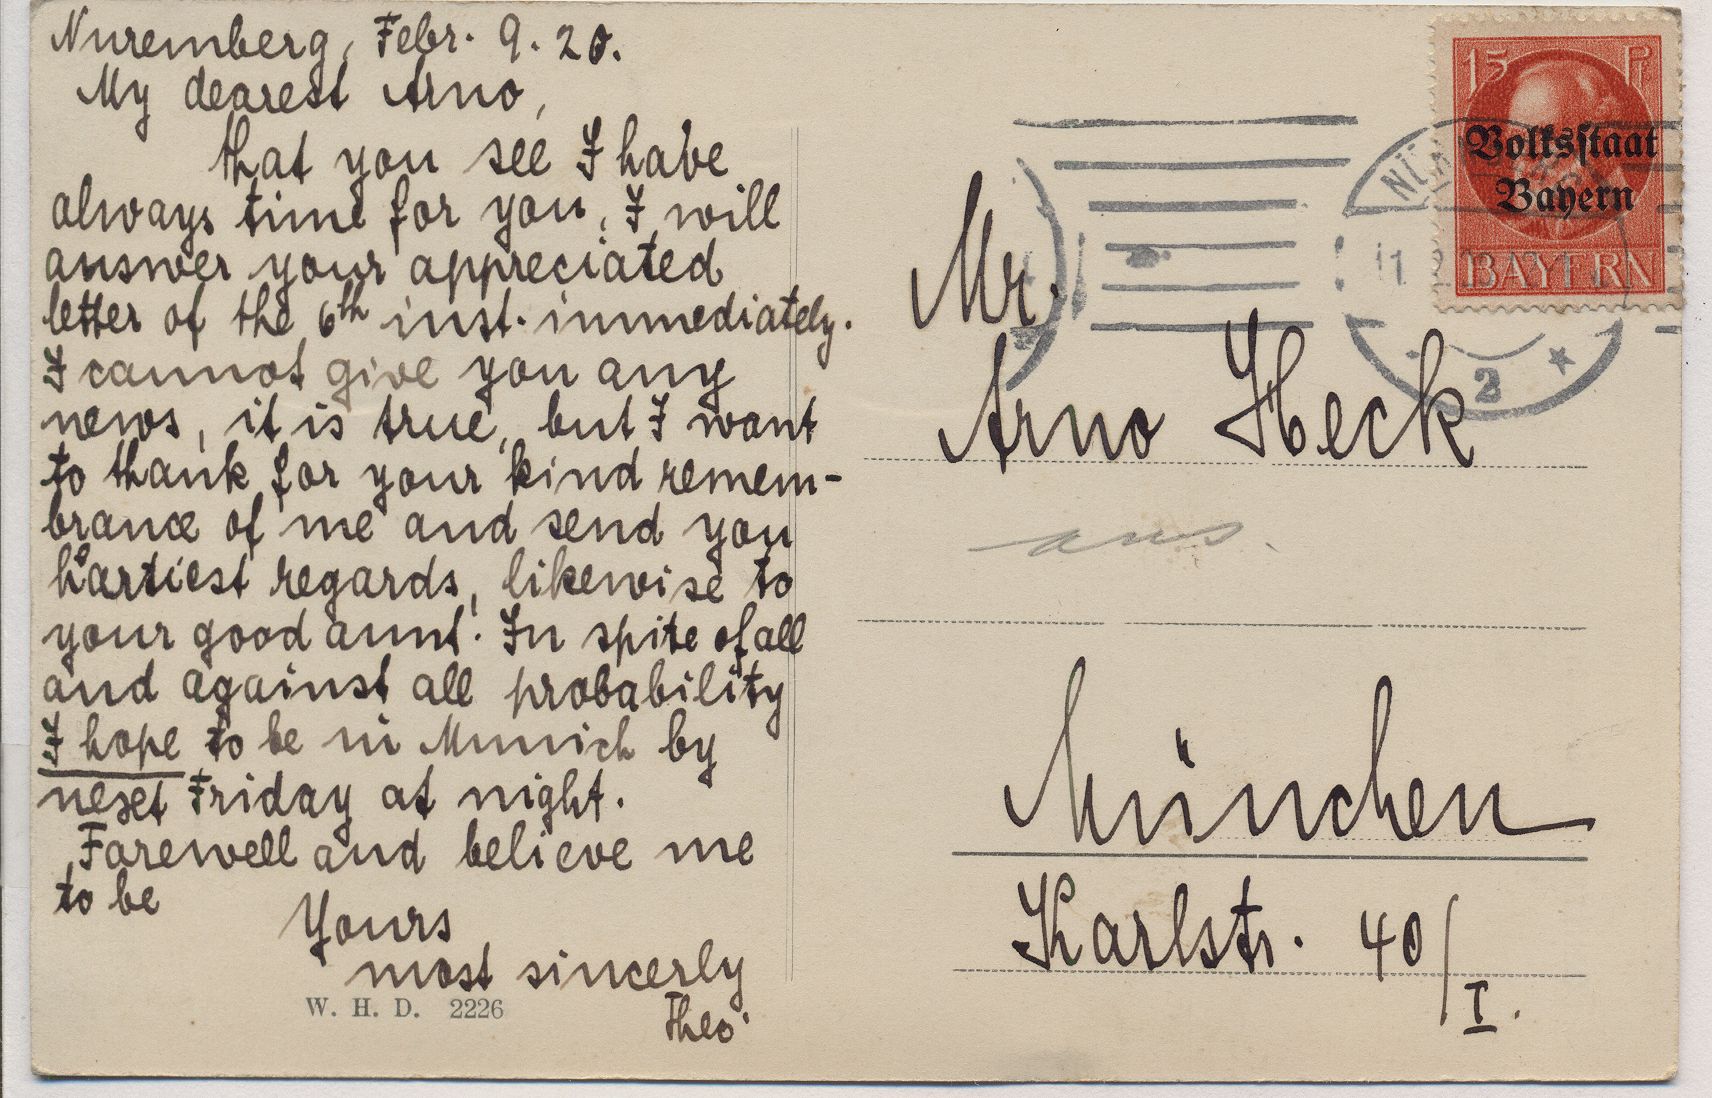 Nuremberg, Febr. 9. 20.
My dearest Arno,
that you see I have
always time for you, I will
answer your appreciated
letter of the 6th inst. immediately.
I cannot give you any
news, it is true, but I want
to thank for your kind remem-
brance of me and send you
heartiest regards, likewise to
your good aunt. In spite of all
and against all probability
I hope to be in Munich by
next Friday at night.
Farewell and believe me
to be
Yours
most sincerly
Theo.
W. H. D. 2226
15 Pf
Volksstaat
Bayern
BAYERN
2
Mr.
Arno Heck
ans.
München
Karlstr. 40/I.